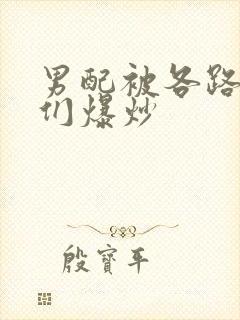 男配被各路
们爆炒
殷寶平